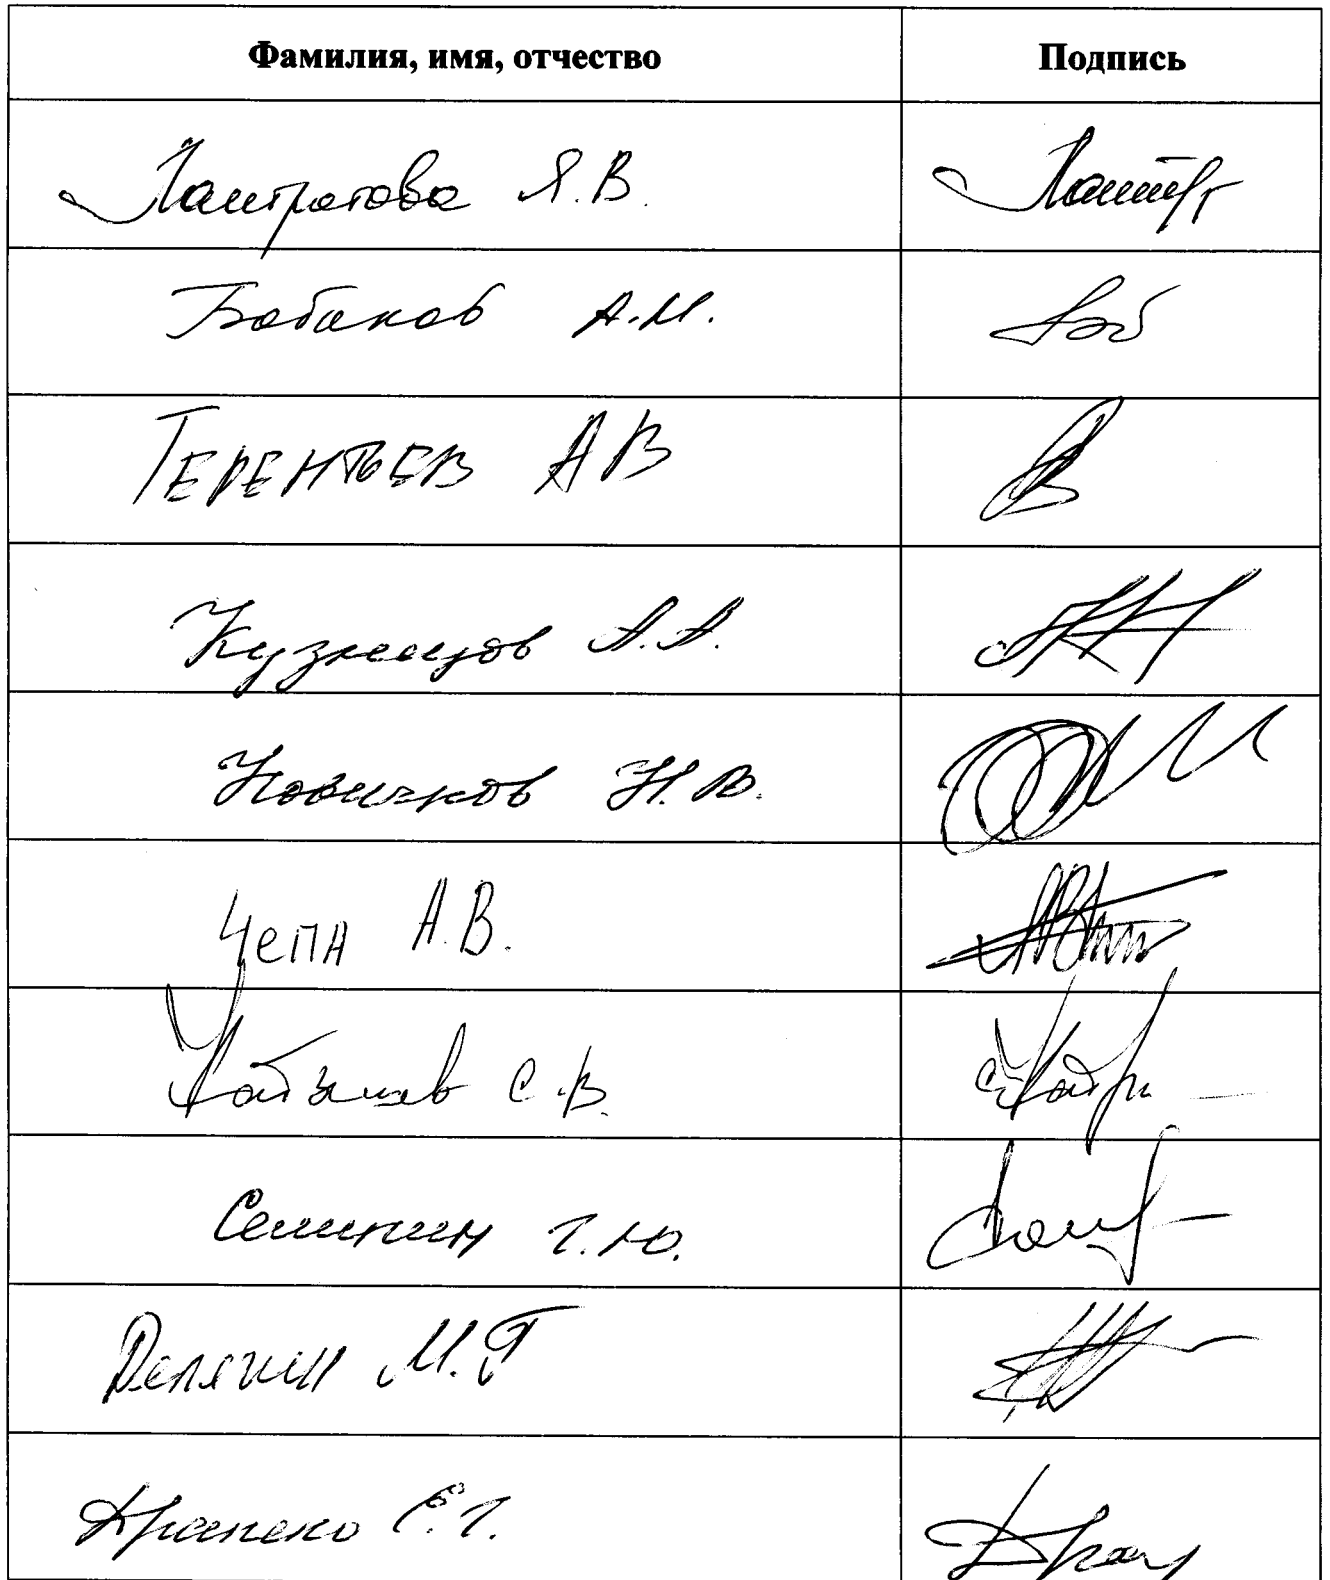 Фамилия, имя, отчество Подпись
Лантратова Я.В.
Бабаков А.М.
ТЕРЕНТЬЕВ А В
Кузнецов А.А.
Новичков Н.В.
Чепа А.В.
Кабышев С.В.
Семигин Г.Ю.
Делягин М.Г
Драпеко Е.Г.